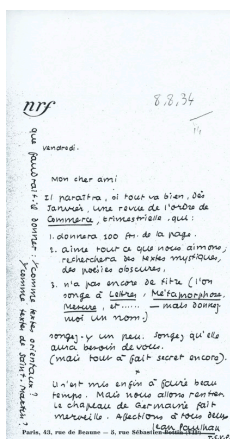 nrf
8.8.34
vendredi.
Mon cher ami
Il paraîtra, si tout va bien, dès
Janvier, une revue de l'ordre de
Commerce, trimestrielle, qui:
1. donnera 100 fr. de la page.
2. aime tout ce que nous aimons,
recherchera des textes mystiques,
des poésies obscures,
3. n'a pas encore de titre (l'on
songe à Lettres, Métamorphose,
Mesure, et ...... — mais donnez-
moi un nom.)
songez-y un peu. Songez qu'elle
aura besoin de vous.
(mais tout à fait secret encore).
Il s'est mis enfin à faire beau
temps. Mais nous allons rentrer
le chapeau de Germaine fait
merveille. Affections à tous deux
Jean Paulhan
Paris, 43, rue de Beaune — 5, rue Sébastien-Bottin (VIIe)
que faudrait-il donner: comme textes orientaux?
comme textes de Saint-Martin?